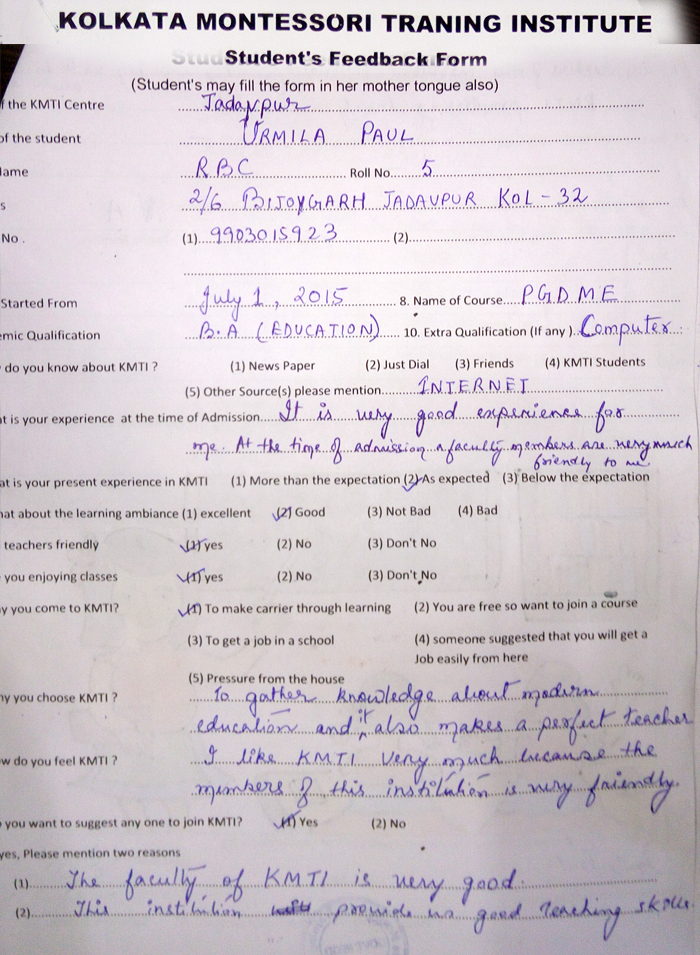 KOLKATA MONTESSORI TRANING INSTITUTE
Student's Feedback Form
(Student's may fill the form in her mother tongue also)
f the KMTI Centre Jadavpur
of the student URMILA PAUL
lame RBC Roll No. 5
s 2/6 BIJOYGARH JADAVPUR KOL - 32
No . (1) 9903015923 (2)
Started From July 1, 2015 8. Name of Course PGDME
emic Qualification B.A (EDUCATION) 10. Extra Qualification (If any ) Computer
do you know about KMTI ? (1) News Paper (2) Just Dial (3) Friends (4) KMTI Students
(5) Other Source(s) please mention INTERNET
at is your experience at the time of Admission It is very good experience for
me. At the time of admission a faculty members are very much
friendly to me
at is your present experience in KMTI (1) More than the expectation (2) As expected (3) Below the expectation
hat about the learning ambiance (1) excellent (2) Good (3) Not Bad (4) Bad
teachers friendly (1) yes (2) No (3) Don't No
you enjoying classes (1) yes (2) No (3) Don't No
y you come to KMTI? (1) To make carrier through learning (2) You are free so want to join a course
(3) To get a job in a school (4) someone suggested that you will get a
Job easily from here
(5) Pressure from the house
hy you choose KMTI ? To gather knowledge about modern
education and it also makes a perfect teacher
w do you feel KMTI ? I like KMTI very much because the
members of this institution is very friendly.
you want to suggest any one to join KMTI? (1) Yes (2) No
yes, Please mention two reasons
(1) The faculty of KMTI is very good.
(2) This institution provide us good teaching skills.